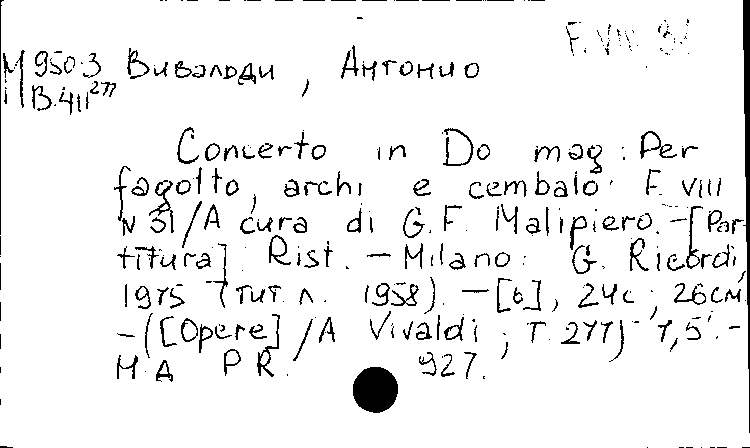 F. VIII 31
М 950.3 Вивальди, Антонио
В.411 277
Concerto in Do mag: Per
fagotto, archi e cembalo: F. VIII
N 31/A cura di G.F. Malipiero. -[Par-
titura]. Rist. - Milano: G. Ricordi,
1975 (тит. л. 1958). - [6], 24с; 26см.
-([Opere]/A Vivaldi; Т. 277) 1,5. -
М.А P.R. 927.